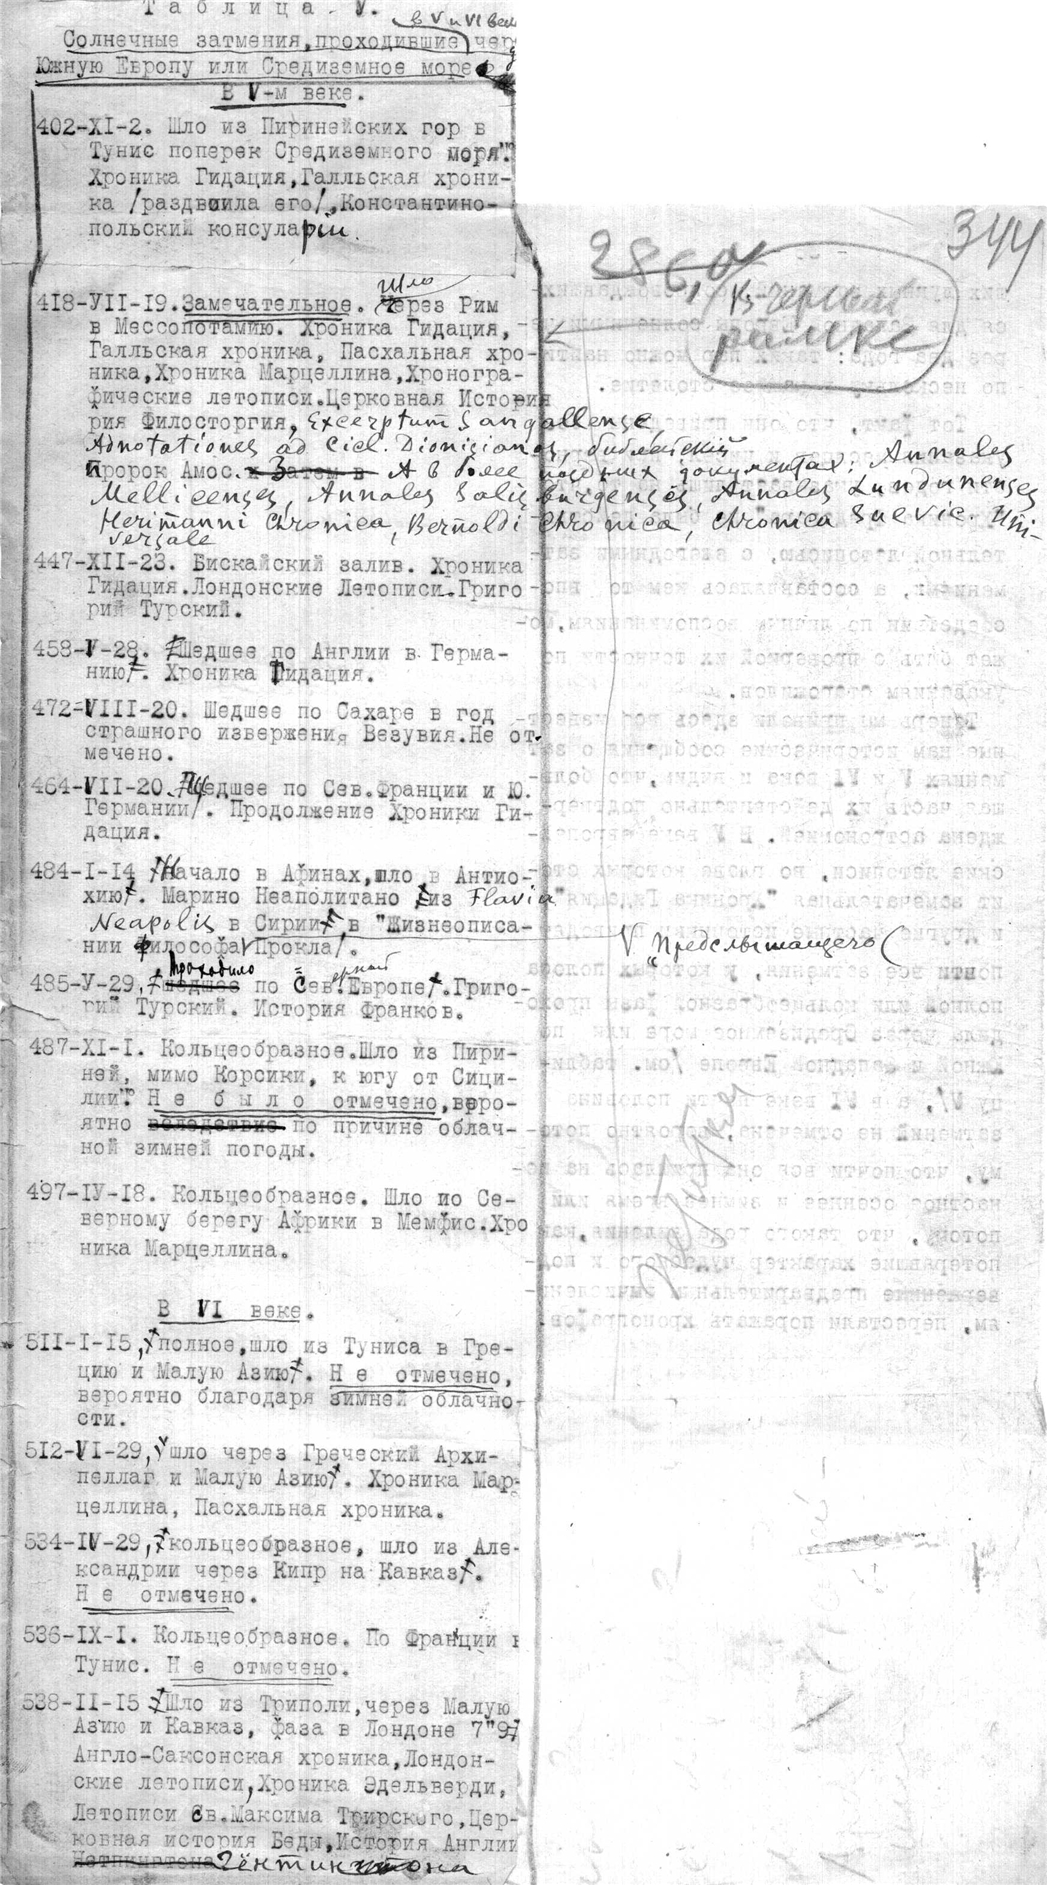 Таблица V.
в V и VI век
Солнечные затмения, проходившие чер
Южную Европу или Средиземное море
В V-м веке.
402-XI-2. Шло из Пиринейских гор в
Тунис поперек Средиземного моря".
Хроника Гидация, Галльская хрони-
ка /раздвоила его/, Константино-
польский консуларiи.
344
286,
В черной
рамке
418-VII-19. Замечательное. Шло через Рим
в Мессопотамию. Хроника Гидация,
Галльская хроника, Пасхальная хро-
ника, Хроника Марцеллина, Хроногра-
фические летописи. Церковная История
рия Филосторгия, Excerptum Sangallense
Adnotationes ad Cicl. Dionisianos, библейский
пророк Амос. и Затем в А в более поздних документах: Annales
Mellicenses, Annales Salisburgenses, Annales Lundunenses
Herimanni Chronica, Bernoldi Chronica, Chronica Suevic. Uni-
versale
447-XII-23. Бискайский залив. Хроника
Гидация. Лондонские Летописи. Григо
рий Турский.
458-V-28. Шедшее по Англии в Герма-
нию. Хроника Гидация.
472-VIII-20. Шедшее по Сахаре в год
страшного извержения Везувия. Не от-
мечено.
464-VII-20. Шедшее по Сев. Франции и Ю.
Германии/. Продолжение Хроники Ги-
дация.
484-I-14 Начало в Афинах, шло в Антио-
хию. Марино Неаполитано из Flavia
Neapolis в Сирии, в "Жизнеописа-
нии философа Прокла/.
V "Предслышащего (
485-V-29, шедшее Проходило по Северной Европе. Григо-
рий Турский. История Франков.
487-XI-I. Кольцеобразное. Шло из Пири-
ней, мимо Корсики, к югу от Сици-
лии". Не было отмечено, веро-
ятно вследствие по причине облач-
ной зимней погоды.
497-IV-18. Кольцеобразное. Шло по Се-
верному берегу Африки в Мемфис. Хро
ника Марцеллина.
В VI веке.
5II-I-15, полное, шло из Туниса в Гре-
цию и Малую Азию. Не отмечено,
вероятно благодаря зимней облачно-
сти.
512-VI-29, шло через Греческий Архи-
пеллаг и Малую Азию. Хроника Мар-
целлина, Пасхальная хроника.
534-IV-29, кольцеобразное, шло из Але-
ксандрии через Кипр на Кавказ.
Не отмечено.
536-IX-I. Кольцеобразное. По Франции в
Тунис. Не отмечено.
538-II-15 Шло из Триполи, через Малую
Азию и Кавказ, фаза в Лондоне 7"9
Англо-Саксонская хроника, Лондон-
ские летописи, Хроника Эдельверди,
Летописи Св. Максима Трирского, Цер-
ковная история Беды, История Англии
Гёнтингтона